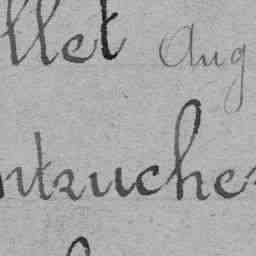 llet Aug
ntzuche